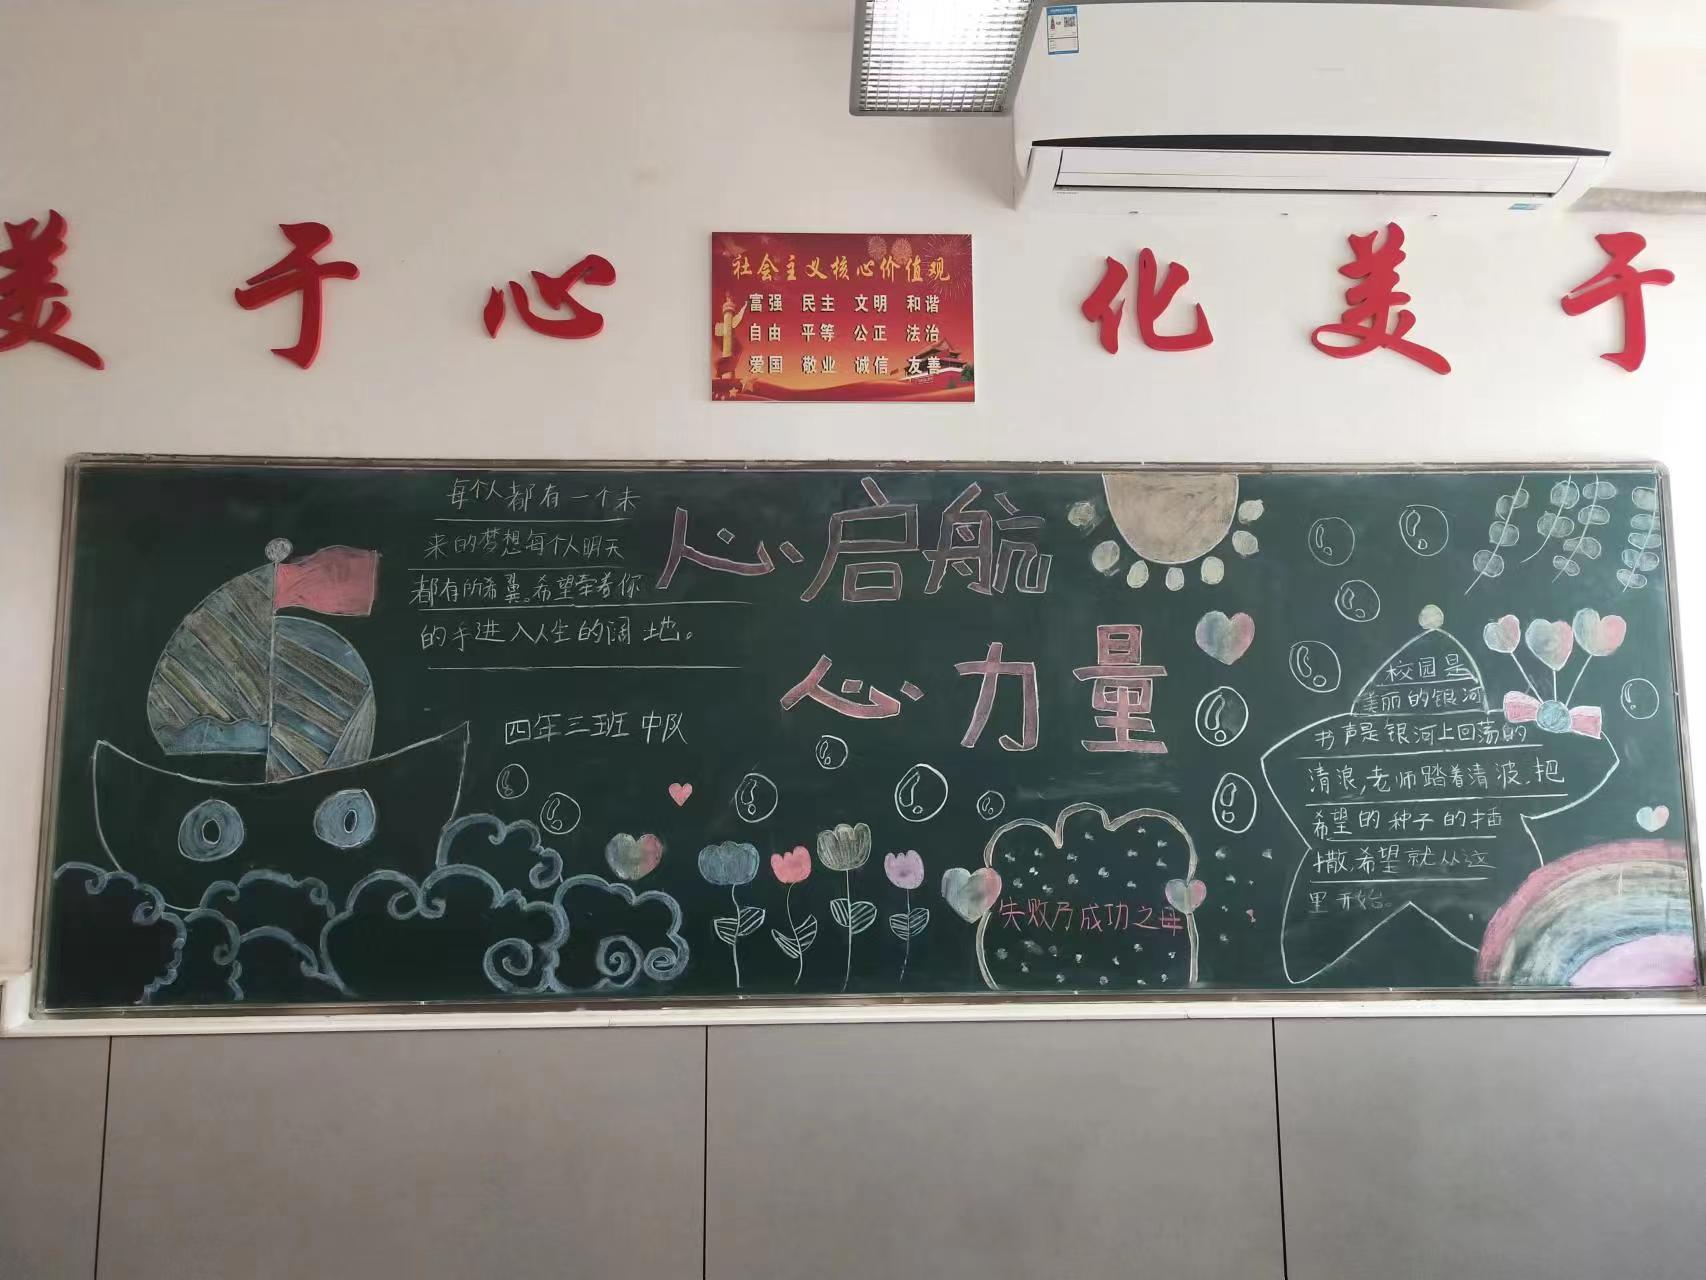 美于心
化美于
社会主义核心价值观
富强 民主 文明 和谐
自由 平等 公正 法治
爱国 敬业 诚信 友善
每个人都有一个未
来的梦想每个人明天
都有所希翼。希望牵着你
的手进入人生的阔 地。
四年三班中队
心启航
心力量
失败乃成功之母
校园是
美丽的银河
书声是银河上回荡的
清浪,老师踏着清波,把
希望的种子的播
撒,希望就从这
里开始。